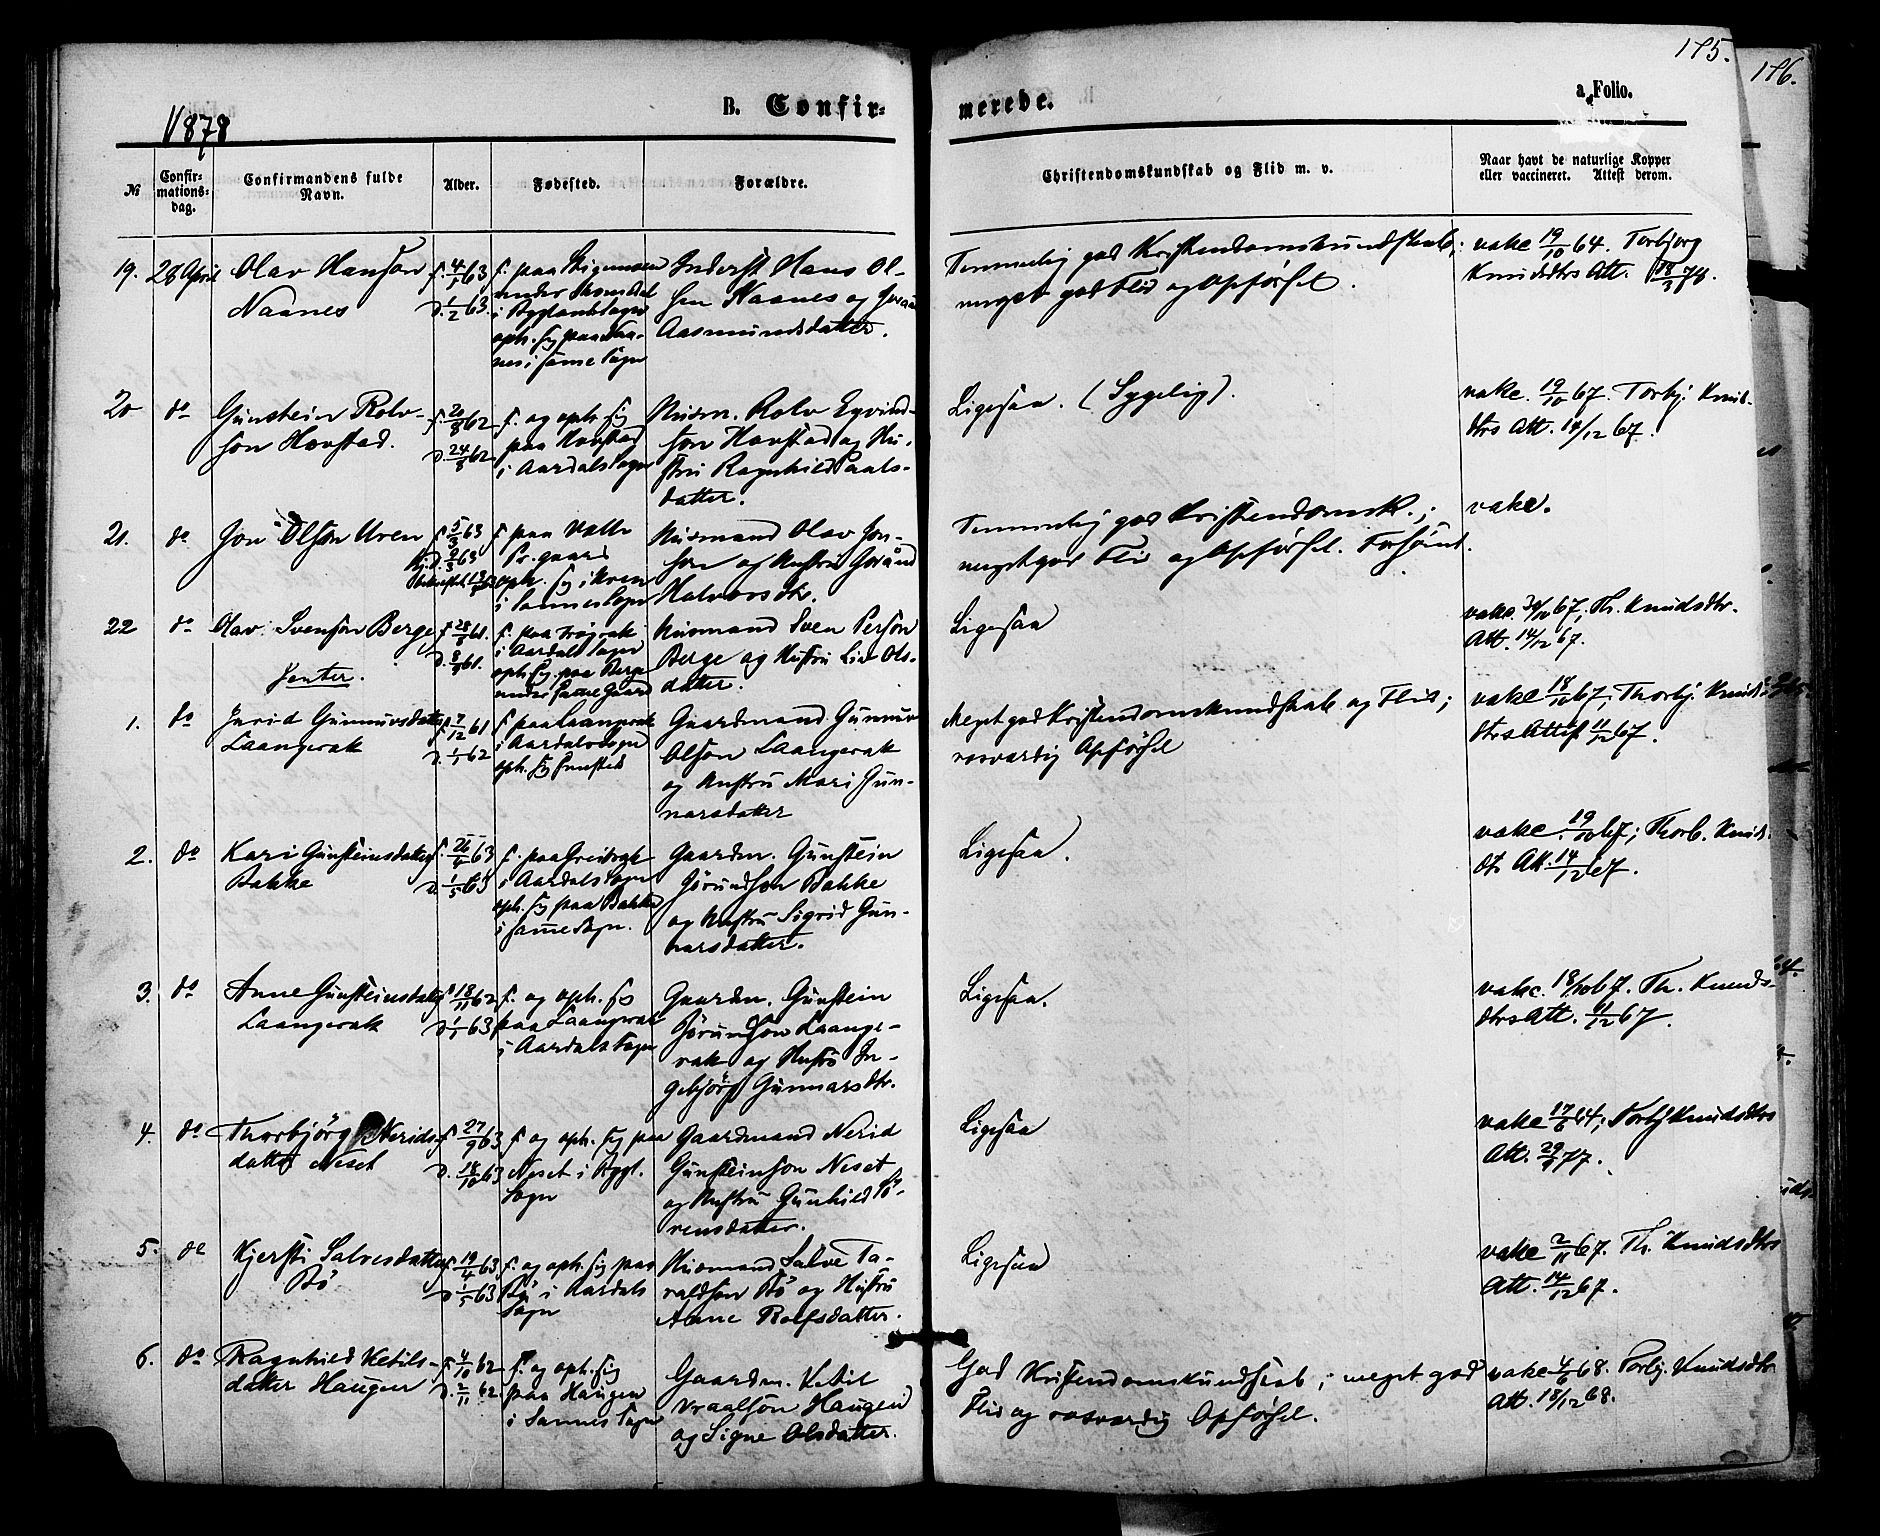 175.
176.
1878
B. Confir-
merede.
a Folio.
№
Confir-
mations-
dag.
Confirmandens fulde
Navn.
Alder.
Fødested.
Forældre.
Christendomskundskab og Flid m. v.
Naar havt de naturlige Kopper
eller vaccineret. Attest derom.
19. 28 April
Olav Hanson
Naanes
f. 4/1 63
d. 1/2 63.
f. paa
under
i Byglands Sogn
oph. sig paa Naa-
nes i samme Sogn
Inderst Hans Ol-
sen Naanes og
Aasmundsdatter.
Temmelig god Kristendomskundskab;
meget god Flid og Opførsel.
vakc 19/10 64. Torbjorg
Knudsdtrs Att. 18/3 78.
20 do
Gunstein Rolv-
son Hovstad.
f. 20/8 62
d. 24/8 62
f. og oph. sig
paa Hovstad
i Aardals Sogn
Husm. Rolv Eyvind-
son Hovstad og Hu-
stru Ragnhild Paals-
datter.
Ligesaa. (Sygelig).
vakc. 19/10 67. Torbj. Knud-
dtrs Att. 14/12 67.
21. do
Jon Olson Uren
f. 5/3 63
f. paa Valle
Pr.gaard
oph. sig i Uren
i Sannes Sogn
Husmand Olav Jon-
son og Hustru Goränd
Halvorsdtr.
Temmelig god Kristendomsk.;
meget god Flid og Opførsel. Forsømt.
vakc.
22 do
Olav Svenson Berge
f. 28/8 61.
d. 8/9 61.
f. paa
i Aardals Sogn
oph. sig paa Berge
under samme Gaard
Husmand Sven Person
Berge og Hustru Liv Ols-
datter.
Ligesaa
vakc. 30/10 67, Th. Knudsdtr.
Att. 14/12 67.
Jenter.
1. do
Jorid Gunnuvsdatter
Laangerak
f. 7/12 61
d. 1/1 62
f. paa Laangerak
i Aardals Sogn
oph. sig sammested
Gaardmand Gunnuv
Olson Laangerak
og Hustru Mari Gun-
narsdatter
Meget god Kristendomskundskab og Flid;
rosværdig Opførsel
vakc 18/10 67; Thorbj. Knuds-
dtrs Attest 11/12 67.
2. do
Kari Gunsteinsdatter
Bakke
f. 26/4 63
d. 1/5 63
f. paa Greibrok
i Aardals Sogn
oph. sig paa Bakke
i samme Sogn.
Gaardm. Gunstein
Jörundson Bakke
og Hustru Sigrid Gun-
narsdatter.
Ligesaa.
vakc. 19/10 67; Thorb. Knuds-
dt. Att. 14/12 67.
3. do
Anne Gunsteinsdatter
Laangerak
f. 18/11 62
d. 1/1 63
f. og oph. sig
paa Laangerak
i Aardals Sogn
Gaardm. Gunstein
Jörundson Laange-
rak og Hustru In-
gebjörg Gunnarsdtr.
Ligesaa.
vakc. 18/10 67. Th. Knuds-
dtrs Att. 11/12 67.
4. do
Thorbjörg Nerids-
datter Neset
f. 27/9 63
d. 18/10 63
f. og oph. sig paa
Neset i Bygl.
Sogn
Gaardmand Nerid
Gunsteinson Neset
og Hustru Gunhild Sö-
rensdatter.
Ligesaa
vakc 17/6 64; Torbj Knudsdtrs
Att. 29/9 77.
5. do
Kjersti Salvesdatter
Bö
f. 19/4 63
d. 1/5 63
f. og oph. sig paa
Bö i Aardals
Sogn
Husmand Salve Ta-
raldson Bö og Hustru
Anne Rolfsdatter.
Ligesaa
vakc 2/11 67. Th. Knudsdtrs
Att. 14/12 67.
6. do
Ragnhild Ketils-
datter Haugen
f. 4/10 62
d. 2/11 62.
f. og oph. sig
paa Haugen
i Sannes Sogn
Gaardm. Ketil
Vraalson Haugen
og Signe Olsdatter.
God Kristendomskundskab; meget god
Flid og rosværdig Opførsel.
vakc 4/6 68. Torbj. Knudsdtr
Att. 18/12 68.